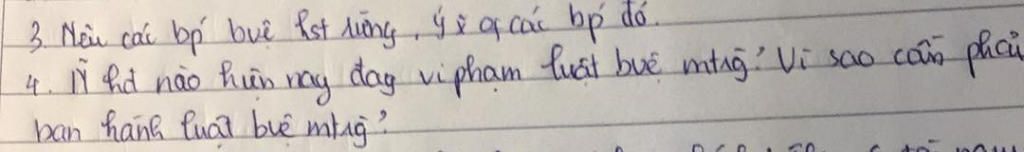 3. Nêu các bp' bvê hst rừng, ý ÿ of các bp' đó.
4. N~ hđ nào hiện nay đag vi phạm luật bvê mtrg? Vì sao cần phải
ban hành luật bvệ mtrg?